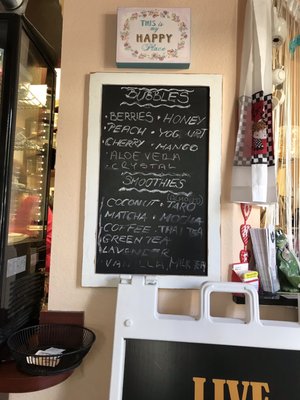 THIS is my
HAPPY
Place
BUBBLES
• BERRIES • HONEY
• PEACH • YOGURT
• CHERRY • MANGO
• ALOE VERA
• CRYSTAL
SMOOTHIES
COCONUT • TARO
MATCHA • MOCHA
COFFEE • THAI TEA
GREEN TEA
LAVENDER
VANILLA, MILK TEA
LIVE